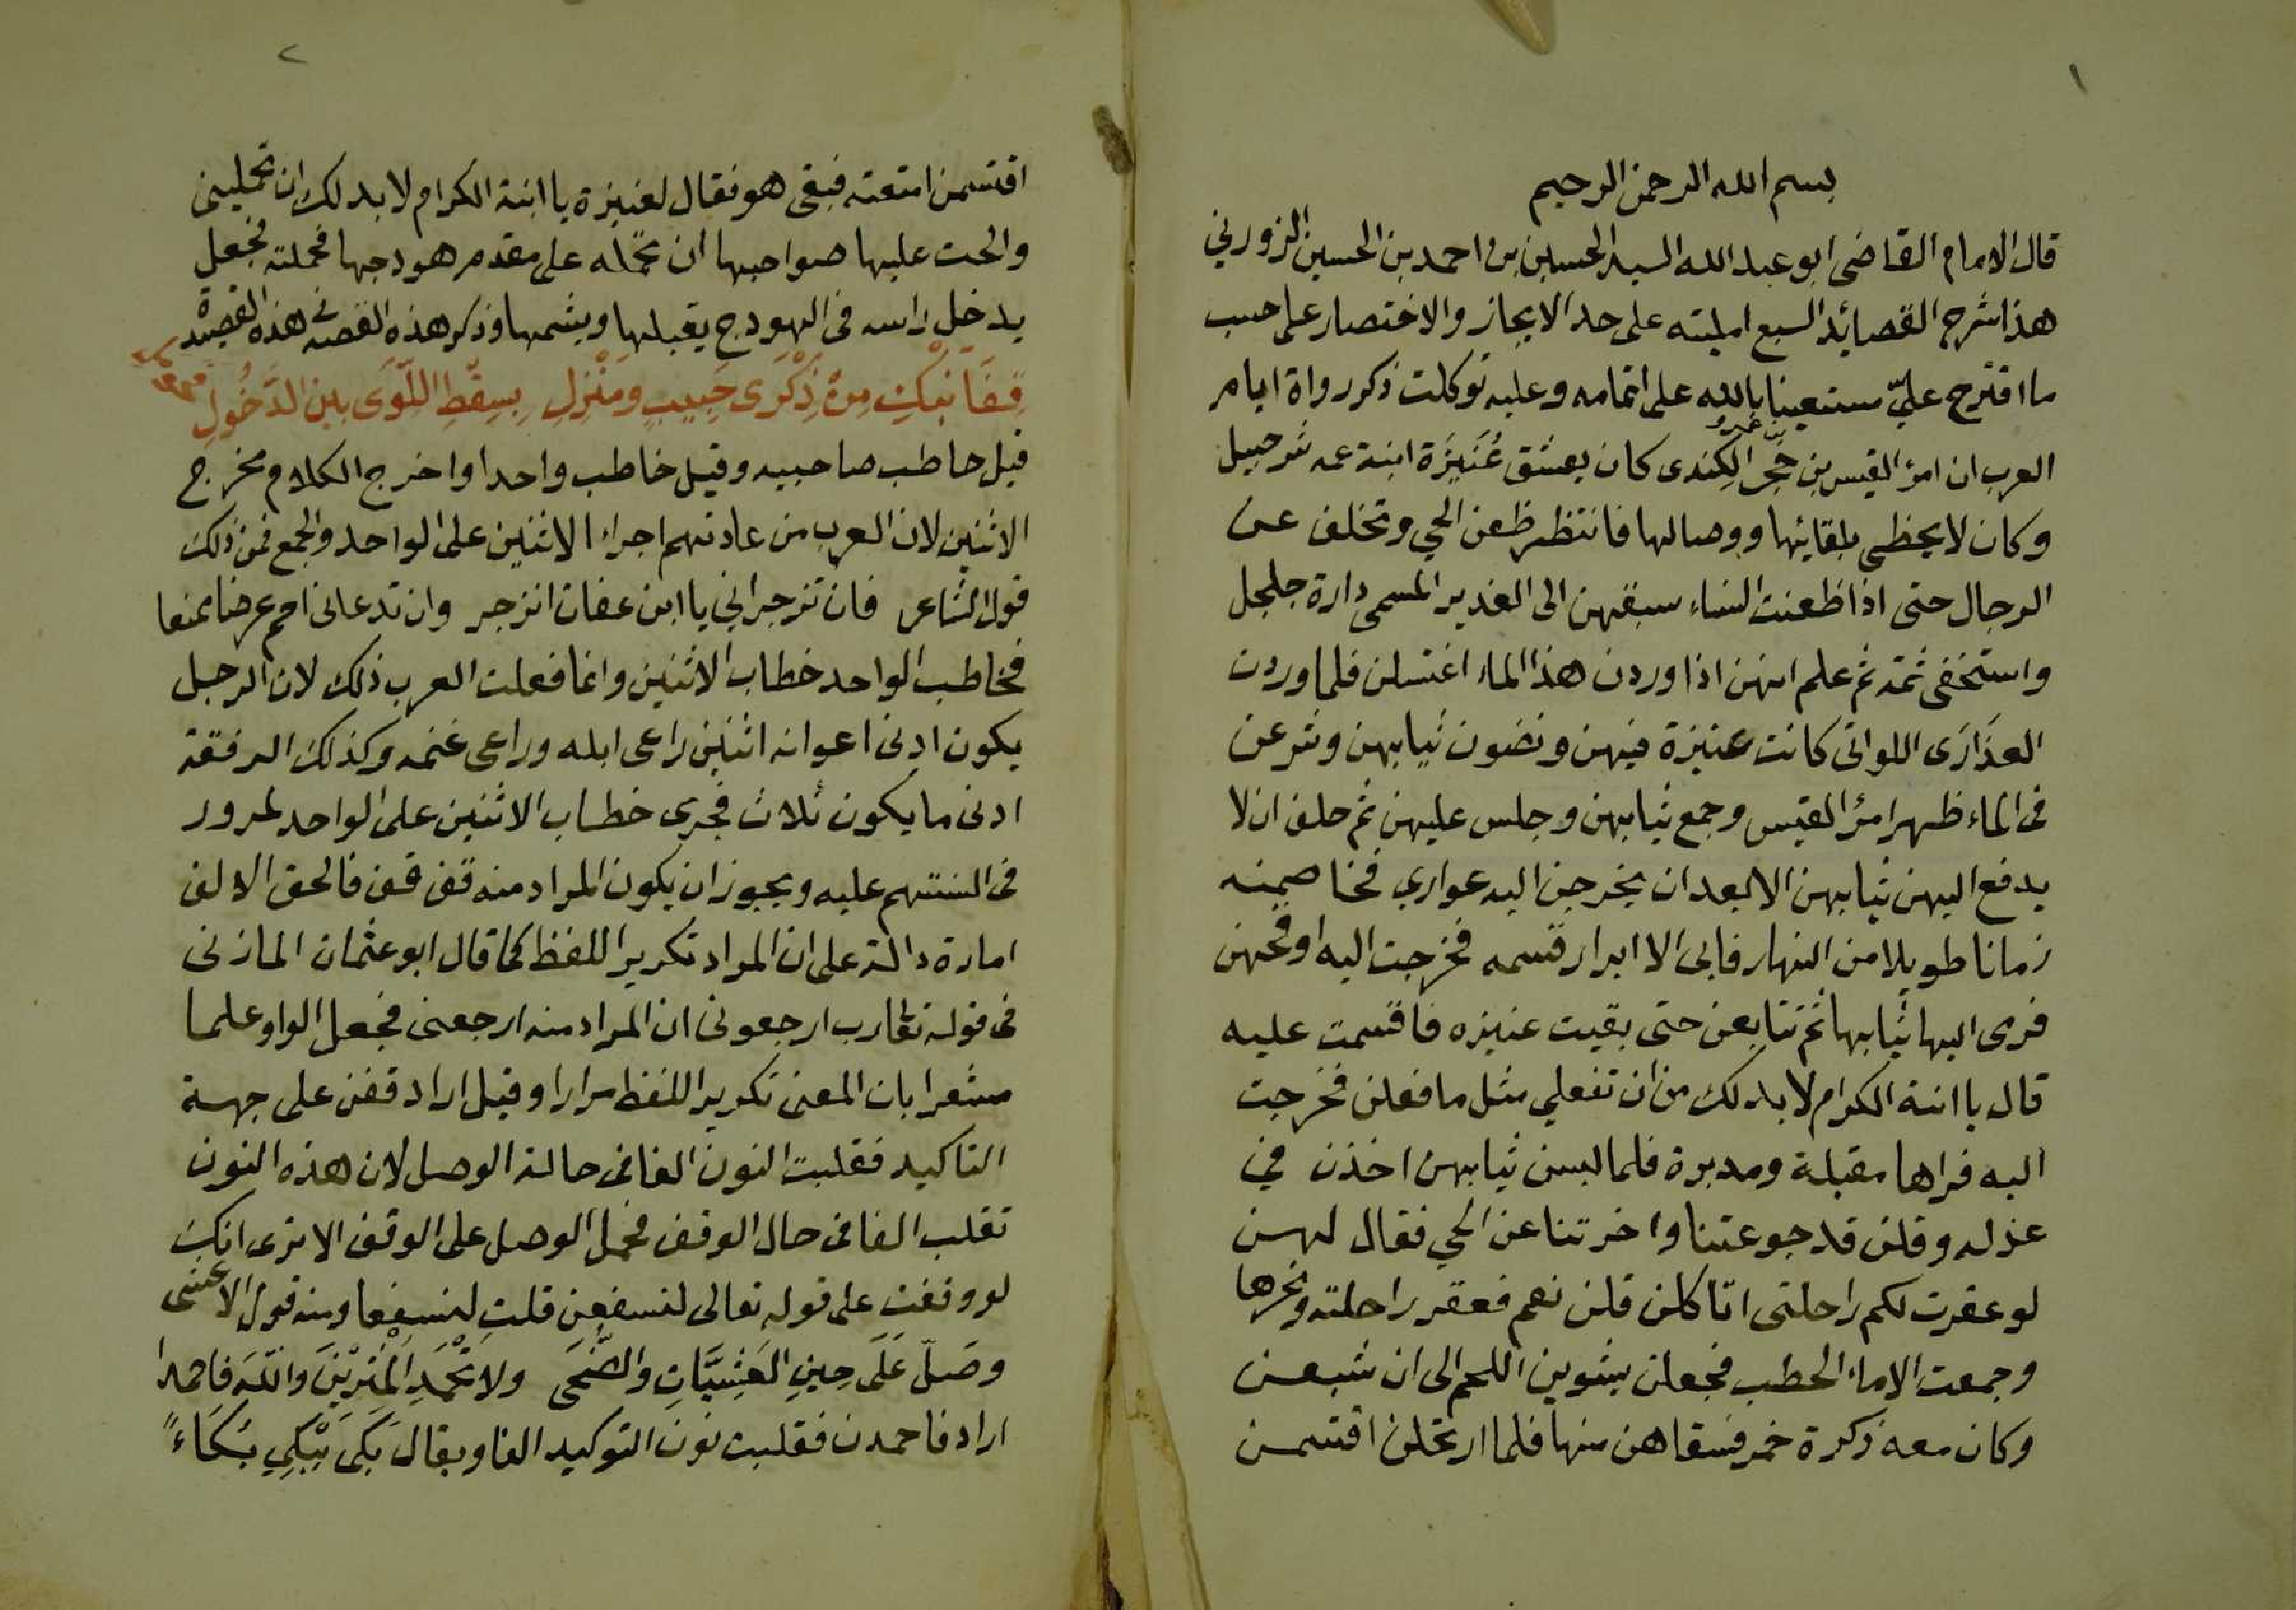 ١
بسم الله الرحمن الرحيم
قال الامام القاضى ابو عبد الله السيد الحسين بن احمد بن الحسين الزوزني
هذا شرح القصائد السبع امليته على حد الايجاز والاختصار على حسب
ما اقترح عليّ مستعينا بالله على اتمامه وعليه توكلت ذكر رواة ايام
العرب ان امرؤ القيس بن حُجر الكِندى كان يعشق عُنَيزَة ابنة عمه شرحبيل
وكان لا يحظى بلقائها ووصالها فانتظر ظعن الحي وتخلف عن
الرجال حتى اذا ظعنت النساء سبقهن الى الغدير المسمى دارة جلجل
واستخفى ثمة ثم علم انهن اذا وردن هذا الماء اغتسلن فلما وردن
العذَارَى اللواتى كانت عنيزة فيهن ونضون ثيابهن وشرعن
فى الماء ظهر امرؤ القيس وجمع ثيابهن وجلس عليهن ثم حلف ان لا
يدفع اليهن ثيابهن الا بعد ان يخرجن اليه عواري فخاصمنه
زمانا طويلا من النهار فابى الا ابرار قسمه فخرجت اليه اوقحهن
فرمى اليها ثيابها ثم تتابعن حتى بقيت عنيزه فاقسمت عليه
قال يا ابنة الكرام لا بد لك من ان تفعلي مثل ما فعلن فخرجت
اليه فراها مقبلة ومدبرة فلما لبسن ثيابهن اخذن في
عذله وقلن قد جوعتنا واخرتنا عن الحي فقال لهن
لو عقرت لكم راحلتى اتاكلن قلن نعم فعقر راحلته ونحرها
وجمعت الاماء الحطب فجعلن يشوين اللحم الى ان شبعن
وكان معه زكرة خمر فسقاهن منها فلما ارتحلن اقتسمن
٢
اقتسمن امتعته فبقى هو فقال لعنيزة يا ابنة الكرام لا بد لك ان تحمليني
والحت عليها صواحبها ان تحمله على مقدم هودجها فحملته فجعل
يدخل راسه فى الهودج يقبلها ويشمها وذكر هذه القصه فى هذه القصيدة
قِفَا نَبْكِ مِنْ ذِكْرَى حَبِيبٍ وَمَنْزِلِ بِسِقْطِ اللِّوَى بين الدَّخُولِ
قيل خاطب صاحبيه وقيل خاطب واحدا واخرج الكلام مخرج
الاثنين لان العرب من عادتهم اجراء الاثنين على الواحد والجمع فمن ذلك
قول الشاعر فان تزجراني يا ابن عفان انزجر وان تدعانى احم عرضا ممنعا
فخاطب الواحد خطاب الاثنين وانما فعلت العرب ذلك لان الرجل
يكون ادنى اعوانه اثنين راعى ابله وراعى غنمه وكذلك الرفقة
ادنى ما يكون ثلاث فجرى خطاب الاثنين على الواحد لمرور
فى السنتهم عليه ويجوز ان يكون المراد منه قف قف فالحق الالف
امارة دالة على ان المراد تكرير اللفظ كما قال ابو عثمان المازنى
فى قوله تعالى رب ارجعونى ان المراد منه ارجعنى فجعل الواو علما
مشعرا بان المعنى تكرير اللفظ مرارا وقيل اراد قفن على جهة
التاكيد فقلبت النون الفا فى حالة الوصل لان هذه النون
تقلب الفا فى حال الوقف فحمل الوصل على الوقف الا ترى انك
لو وقفت على قوله تعالى لنسفعن قلت لنسفعا ومنه قول الاعشى
وصَلِّ عَلَى حِينِ العَشِيَّاتِ والضُّحَى ولا تَحْمَدِ المُثْرِيْنَ واللهَ فاحمدا
اراد فاحمدن فقلبت نون التوكيد الفا ويقال بَكَى يَبْكِي بُكَاءً